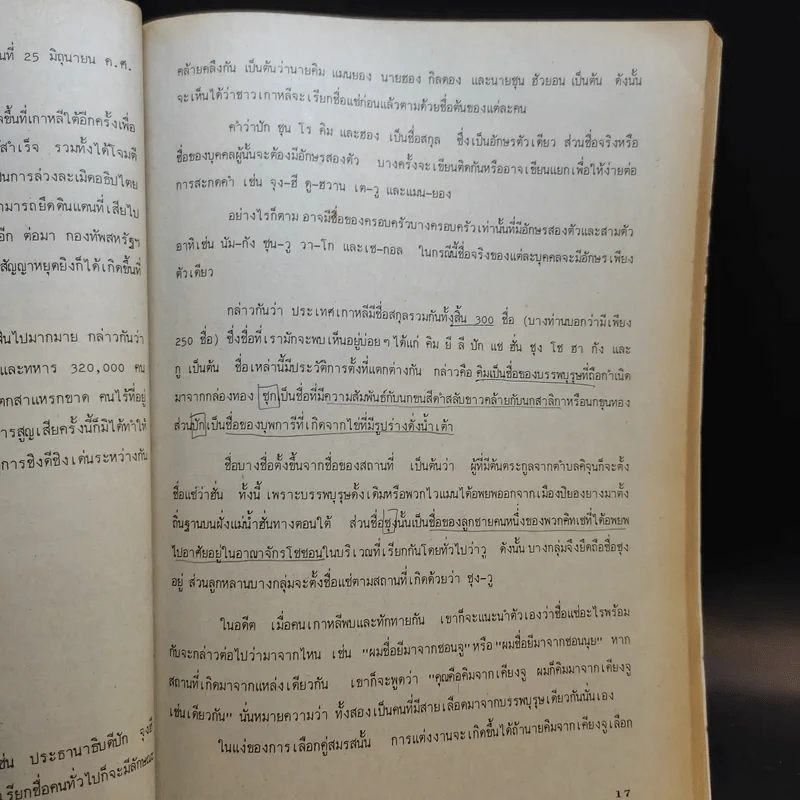 นที่ 25 มิถุนายน ค.ศ.
ลขึ้นที่เกาหลีใต้อีกครั้งเพื่อ
สำเร็จ รวมทั้งได้โจมตี
ป็นการล่วงละเมิดอธิปไตย
ามารถยึดดินแดนที่เสียไป
อีก ต่อมา กองทัพสหรัฐฯ
สัญญาหยุดยิงก็ได้เกิดขึ้นที่
สินไปมากมาย กล่าวกันว่า
และทหาร 320,000 คน
ตกสาแหรกขาด คนไร้ที่อยู่
การสูญเสียครั้งนี้ก็มิได้ทำให้
การชิงดีชิงเด่นระหว่างกัน
ช่น ประธานาธิบดีปัก จุงฮี
เรียกชื่อคนทั่วไปก็จะมีลักษณะ
คล้ายคลึงกัน เป็นต้นว่านายคิม แมนยอง นายฮอง กิลดอง และนายชุน ฮัวยอน เป็นต้น ดังนั้น
จะเห็นได้ว่าชาวเกาหลีจะเรียกชื่อแซ่ก่อนแล้วตามด้วยชื่อต้นของแต่ละคน
คำว่าปัก ชุน โร คิม และฮอง เป็นชื่อสกุล ซึ่งเป็นอักษรตัวเดียว ส่วนชื่อจริงหรือ
ชื่อของบุคคลผู้นั้นจะต้องมีอักษรสองตัว บางครั้งจะเขียนติดกันหรืออาจเขียนแยกเพื่อให้ง่ายต่อ
การสะกดคำ เช่น จุง-ฮี ดู-ฮวาน เต-วู และแมน-ยอง
อย่างไรก็ตาม อาจมีชื่อของครอบครัวบางครอบครัวเท่านั้นที่มีอักษรสองตัวและสามตัว
อาทิเช่น นัม-กัง ชุน-วู วา-โก และเช-กอล ในกรณีนี้ชื่อจริงของแต่ละบุคคลจะมีอักษรเพียง
ตัวเดียว
กล่าวกันว่า ประเทศเกาหลีมีชื่อสกุลรวมกันทั้งสิ้น 300 ชื่อ (บางท่านบอกว่ามีเพียง
250 ชื่อ) ซึ่งชื่อที่เรามักจะพบเห็นอยู่บ่อยๆ ได้แก่ คิม ยี ลี ปัก แช ฮั่น ชุง โช ฮา กัง และ
กู เป็นต้น ชื่อเหล่านี้มีประวัติการตั้งที่แตกต่างกัน กล่าวคือ คิมเป็นชื่อของบรรพบุรุษที่ถือกำเนิด
มาจากกล่องทอง ชุกเป็นชื่อที่มีความสัมพันธ์กับนกขนสีดำสลับขาวคล้ายกับนกสาลิกาหรือนกขุนทอง
ส่วนปักเป็นชื่อของบุพการีที่เกิดจากไข่ที่มีรูปร่างดั่งน้ำเต้า
ชื่อบางชื่อตั้งขึ้นจากชื่อของสถานที่ เป็นต้นว่า ผู้ที่มีต้นตระกูลจากตำบลคิจุนก็จะตั้ง
ชื่อแซ่ว่าฮั่น ทั้งนี้ เพราะบรรพบุรุษดั้งเดิมหรือพวกไวแมนได้อพยพออกจากเมืองปียองยางมาตั้ง
ถิ่นฐานบนฝั่งแม่น้ำฮั่นทางตอนใต้ ส่วนชื่อชุงนั้นเป็นชื่อของลูกชายคนหนึ่งของพวกคิทเชที่ได้อพยพ
ไปอาศัยอยู่ในอาณาจักรโชซอนในบริเวณที่เรียกกันโดยทั่วไปว่าวู ดังนั้น บางกลุ่มจึงยึดถือชื่อชุง
อยู่ ส่วนลูกหลานบางกลุ่มจะตั้งชื่อแซ่ตามสถานที่เกิดด้วยว่า ชุง-วู
ในอดีต เมื่อคนเกาหลีพบและทักทายกัน เขาก็จะแนะนำตัวเองว่าชื่อแซ่อะไรพร้อม
กับจะกล่าวต่อไปว่ามาจากไหน เช่น "ผมชื่อยีมาจากชอนจู" หรือ "ผมชื่อยีมาจากชอนนุย" หาก
สถานที่เกิดมาจากแหล่งเดียวกัน เขาก็จะพูดว่า "คุณคือคิมจากเคียงจู ผมก็คิมมาจากเคียงจู
เช่นเดียวกัน" นั่นหมายความว่า ทั้งสองเป็นคนที่มีสายเลือดมาจากบรรพบุรุษเดียวกันนั่นเอง
ในแง่ของการเลือกคู่สมรสนั้น การแต่งงานจะเกิดขึ้นได้ถ้านายคิมจากเคียงจูเลือก
17